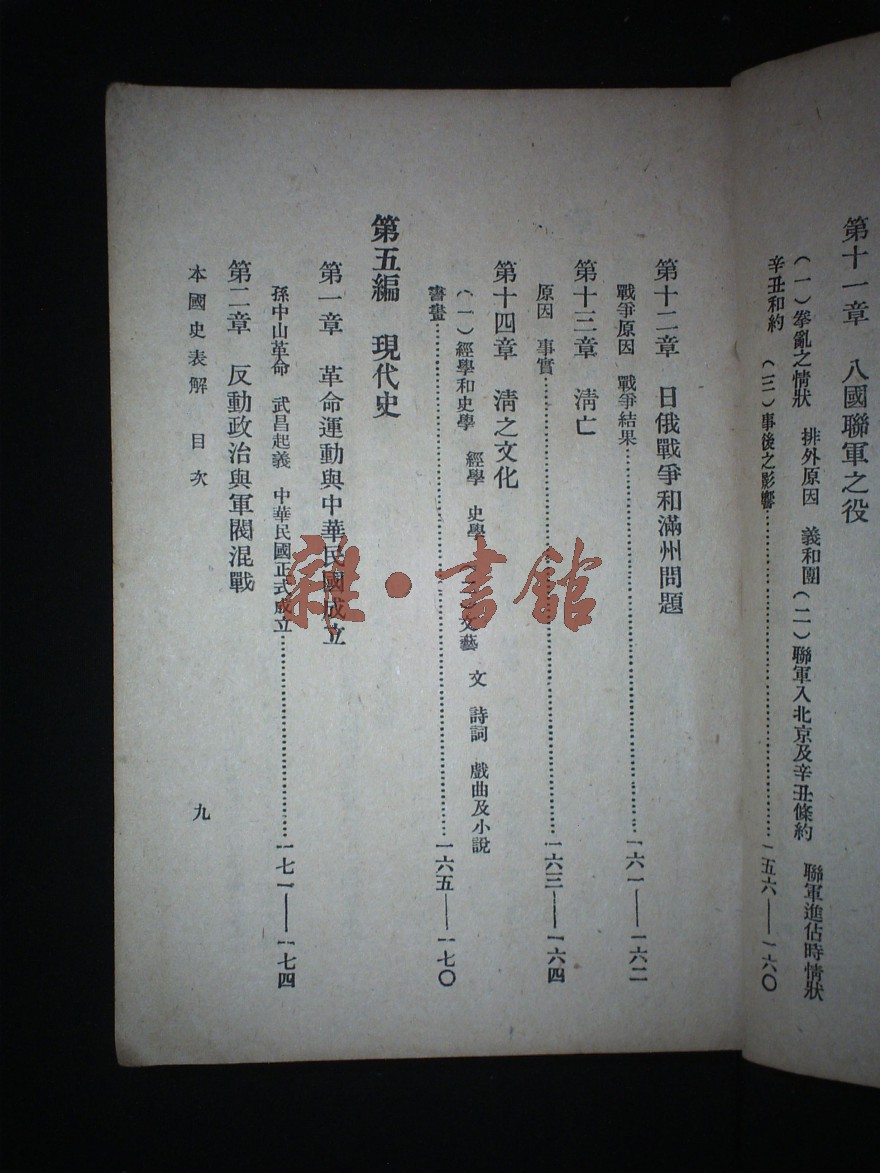 第十一章　八國聯軍之役
（一）拳亂之情狀　排外原因　義和團（二）聯軍入北京及辛丑條約　聯軍進佔時情狀
辛丑和約　（三）事後之影響……………………一五六——一六〇
第十二章　日俄戰爭和滿州問題
戰爭原因　戰爭結果……………………一六一——一六二
第十三章　淸亡
原因　事實……………………一六三——一六四
第十四章　淸之文化
（一）經學和史學　經學　史學　文藝　文　詩詞　戲曲及小說
書畫……………………一六五——一七〇
第五編　現代史
第一章　革命運動與中華民國成立
孫中山革命　武昌起義　中華民國正式成立……………………一七一——一七四
第二章　反動政治與軍閥混戰
本國史表解　目次　九
雜·書館